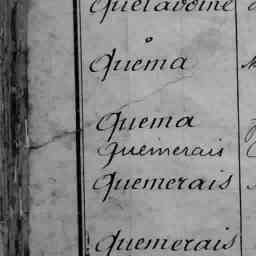 Quelavoine
Quema
Quema
Quemerais
Quemerais
Quemerais